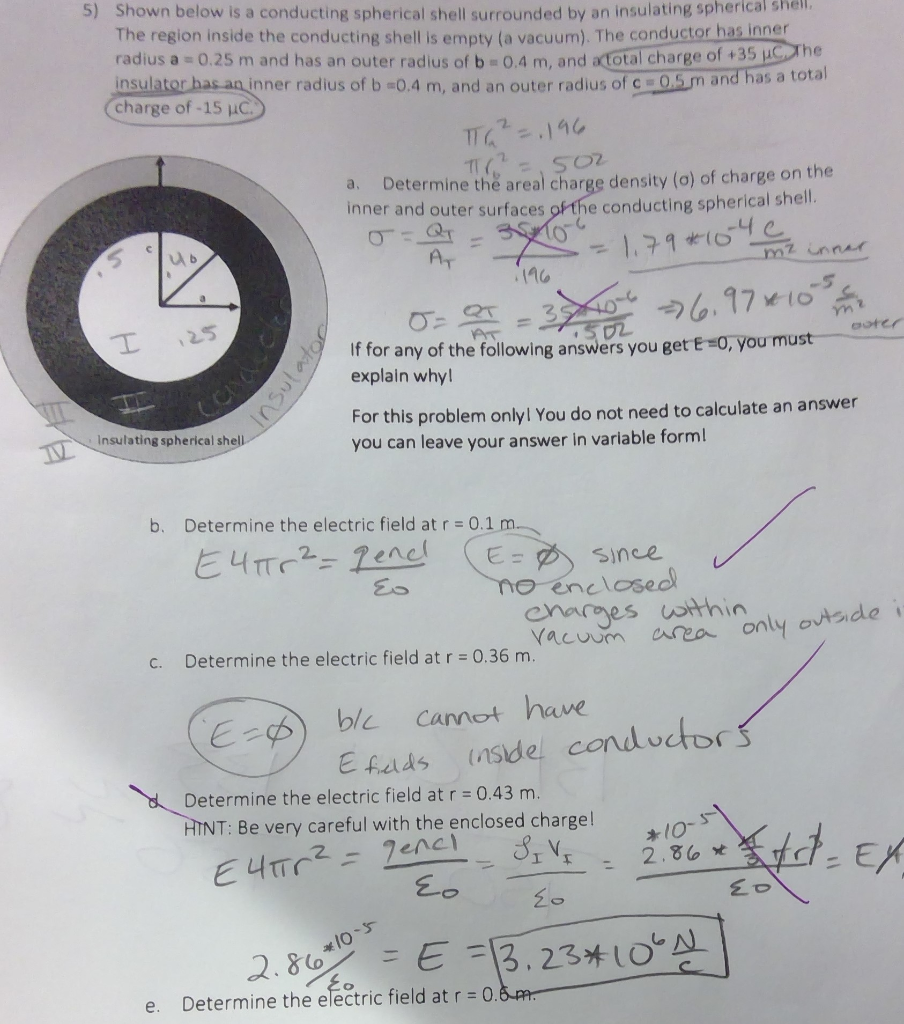 5) Shown below is a conducting spherical shell surrounded by an insulating spherical shell.
The region inside the conducting shell is empty (a vacuum). The conductor has inner
radius a = 0.25 m and has an outer radius of b = 0.4 m, and a total charge of +35 µC. The
insulator has an inner radius of b =0.4 m, and an outer radius of c = 0.5 m and has a total
charge of -15 µC.
πr_a² = .196
πr_b² = .502
a. Determine the areal charge density (σ) of charge on the
inner and outer surfaces of the conducting spherical shell.
σ = Q_T/A_T = 35*10^-6/.196 = 1.79 *10^-4 C/m² inner
σ = Q_T/A_T = 35*10^-6/.502 ⇒ 6.97 *10^-5 C/m² outer
If for any of the following answers you get E =0, you must
explain why!
For this problem only! You do not need to calculate an answer
you can leave your answer in variable form!
c
.5
.4 b
a
I
.25
II
conductor
Insulator
III
IV
insulating spherical shell
b. Determine the electric field at r = 0.1 m.
E4πr² = qencl/ε0
E = ∅ since
no enclosed
charges within
vacuum area only outside
c. Determine the electric field at r = 0.36 m.
E=∅ b/c cannot have
E fields inside conductors
d Determine the electric field at r = 0.43 m.
HINT: Be very careful with the enclosed charge!
E4πr² = qencl/ε0 = ρ_I V_I/ε0 =
2.86*10^-5/ε0 = E = 3.23*10^6 N/C
e. Determine the electric field at r = 0.6 m.